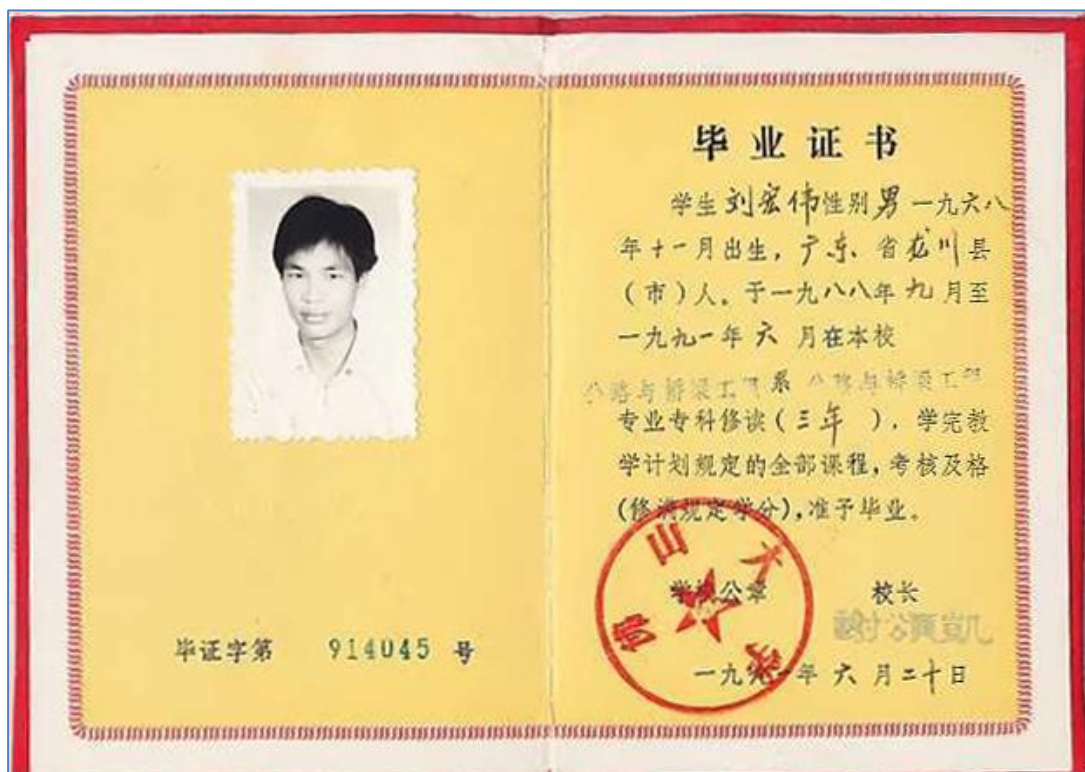 毕证字第 914045 号
毕业证书
学生刘宏伟性别男一九六八
年十一月出生，广东省龙川县
（市）人。于一九八八年九月至
一九九一年六月在本校
公路与桥梁工程系 公路与桥梁工程
专业专科修读（三年），学完教
学计划规定的全部课程，考核及格
（修满规定学分），准予毕业。
佛山大学
学校公章 校长
一九九一年六月二十日